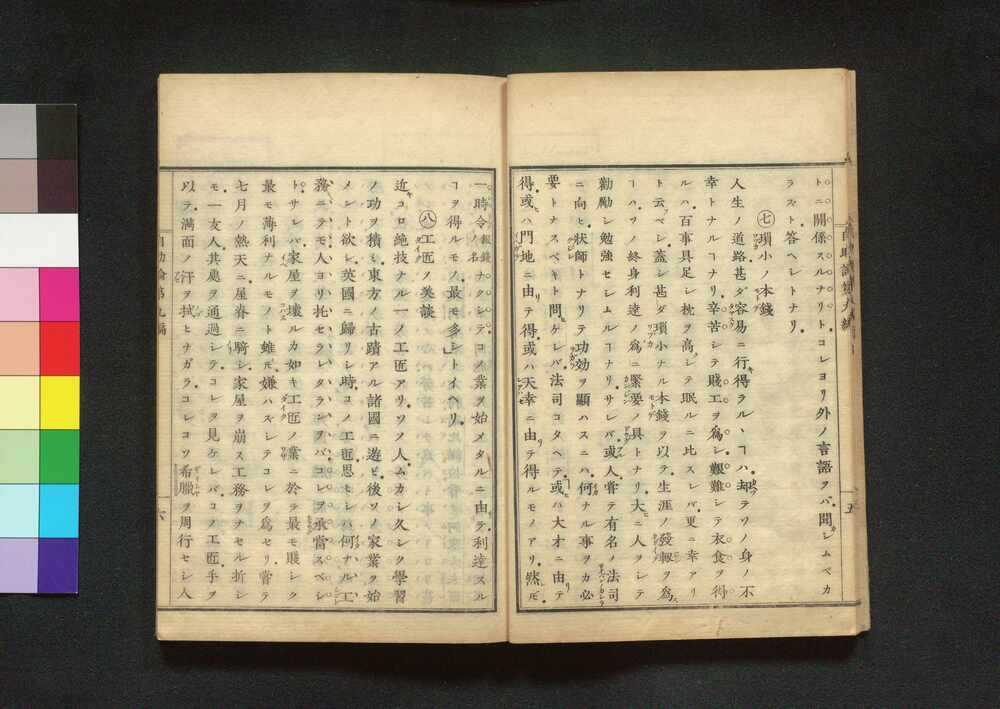 トニ關係スルナリトコレヨリ外ノ言語ヲバ聞シムベカ
ラズト答ヘレトナリ
㊆瑣小ノ本錢
人生ノ道路甚ダ容易ニ行得ラルヽヿハ却テソノ身ノ不
幸トナルヿナリ辛苦シテ賤工ヲ爲シ艱難シテ衣食ヲ得
ルハ百事具足シ枕ヲ高シテ眠ルニ比スレバ更ニ幸アリ
ト云ベシ蓋シ甚ダ瑣小ナル本錢ヲ以テ生涯ノ發軔ヲ爲
ヿハソノ終身利達ノ爲ニ緊要ノ具トナリ大ニ人ヲシテ
勸勵シ勉強セシムルヿナリサレバ或人嘗テ有名ノ法司
ニ向ヒ狀師トナリテ功効ヲ顯ハスニハ何ナル事ヲカ必
要トナスベキト問ケレバ法司コタヘテ或ハ大才ニ由テ
得或ハ門地ニ由テ得或ハ天幸ニ由テ得ルモノアリ然𪜈
五
一時令銀錢ノ名ナクシテコノ業ヲ始メタルニ由テ利達スル
ヿヲ得ルモノ最モ多シトイヘリ
㊇工匠ノ美談
近コロ絶技ナル一ノ工匠アリソノ人ムカシ久シク學習
ノ功ヲ積ミ東方ノ古蹟アル諸國ニ遊ビ後ソノ家業ヲ始
メント欲シ英國ニ歸リシ時コノ工匠思モシハ何ナル工
務ニテモ人ヨリ托セラレタランヲバコレヲ承當スベシ
トサレバ家屋ヲ壞ルカ如キ工匠ノ業ニ於テ最モ賤シク
最モ薄利ナルモノト雖𪜈嫌ハズシテコレヲ爲セリ嘗テ
七月ノ熱天ニ屋脊ニ騎シ家屋ヲ崩ス工務ヲナセル折シ
モ一友人其處ヲ通過シテコレヲ見ケレバコノ工匠手ヲ
以テ滿面ノ汗ヲ拭ヒナガラコレコソ希臘ヲ周行セシ人
六